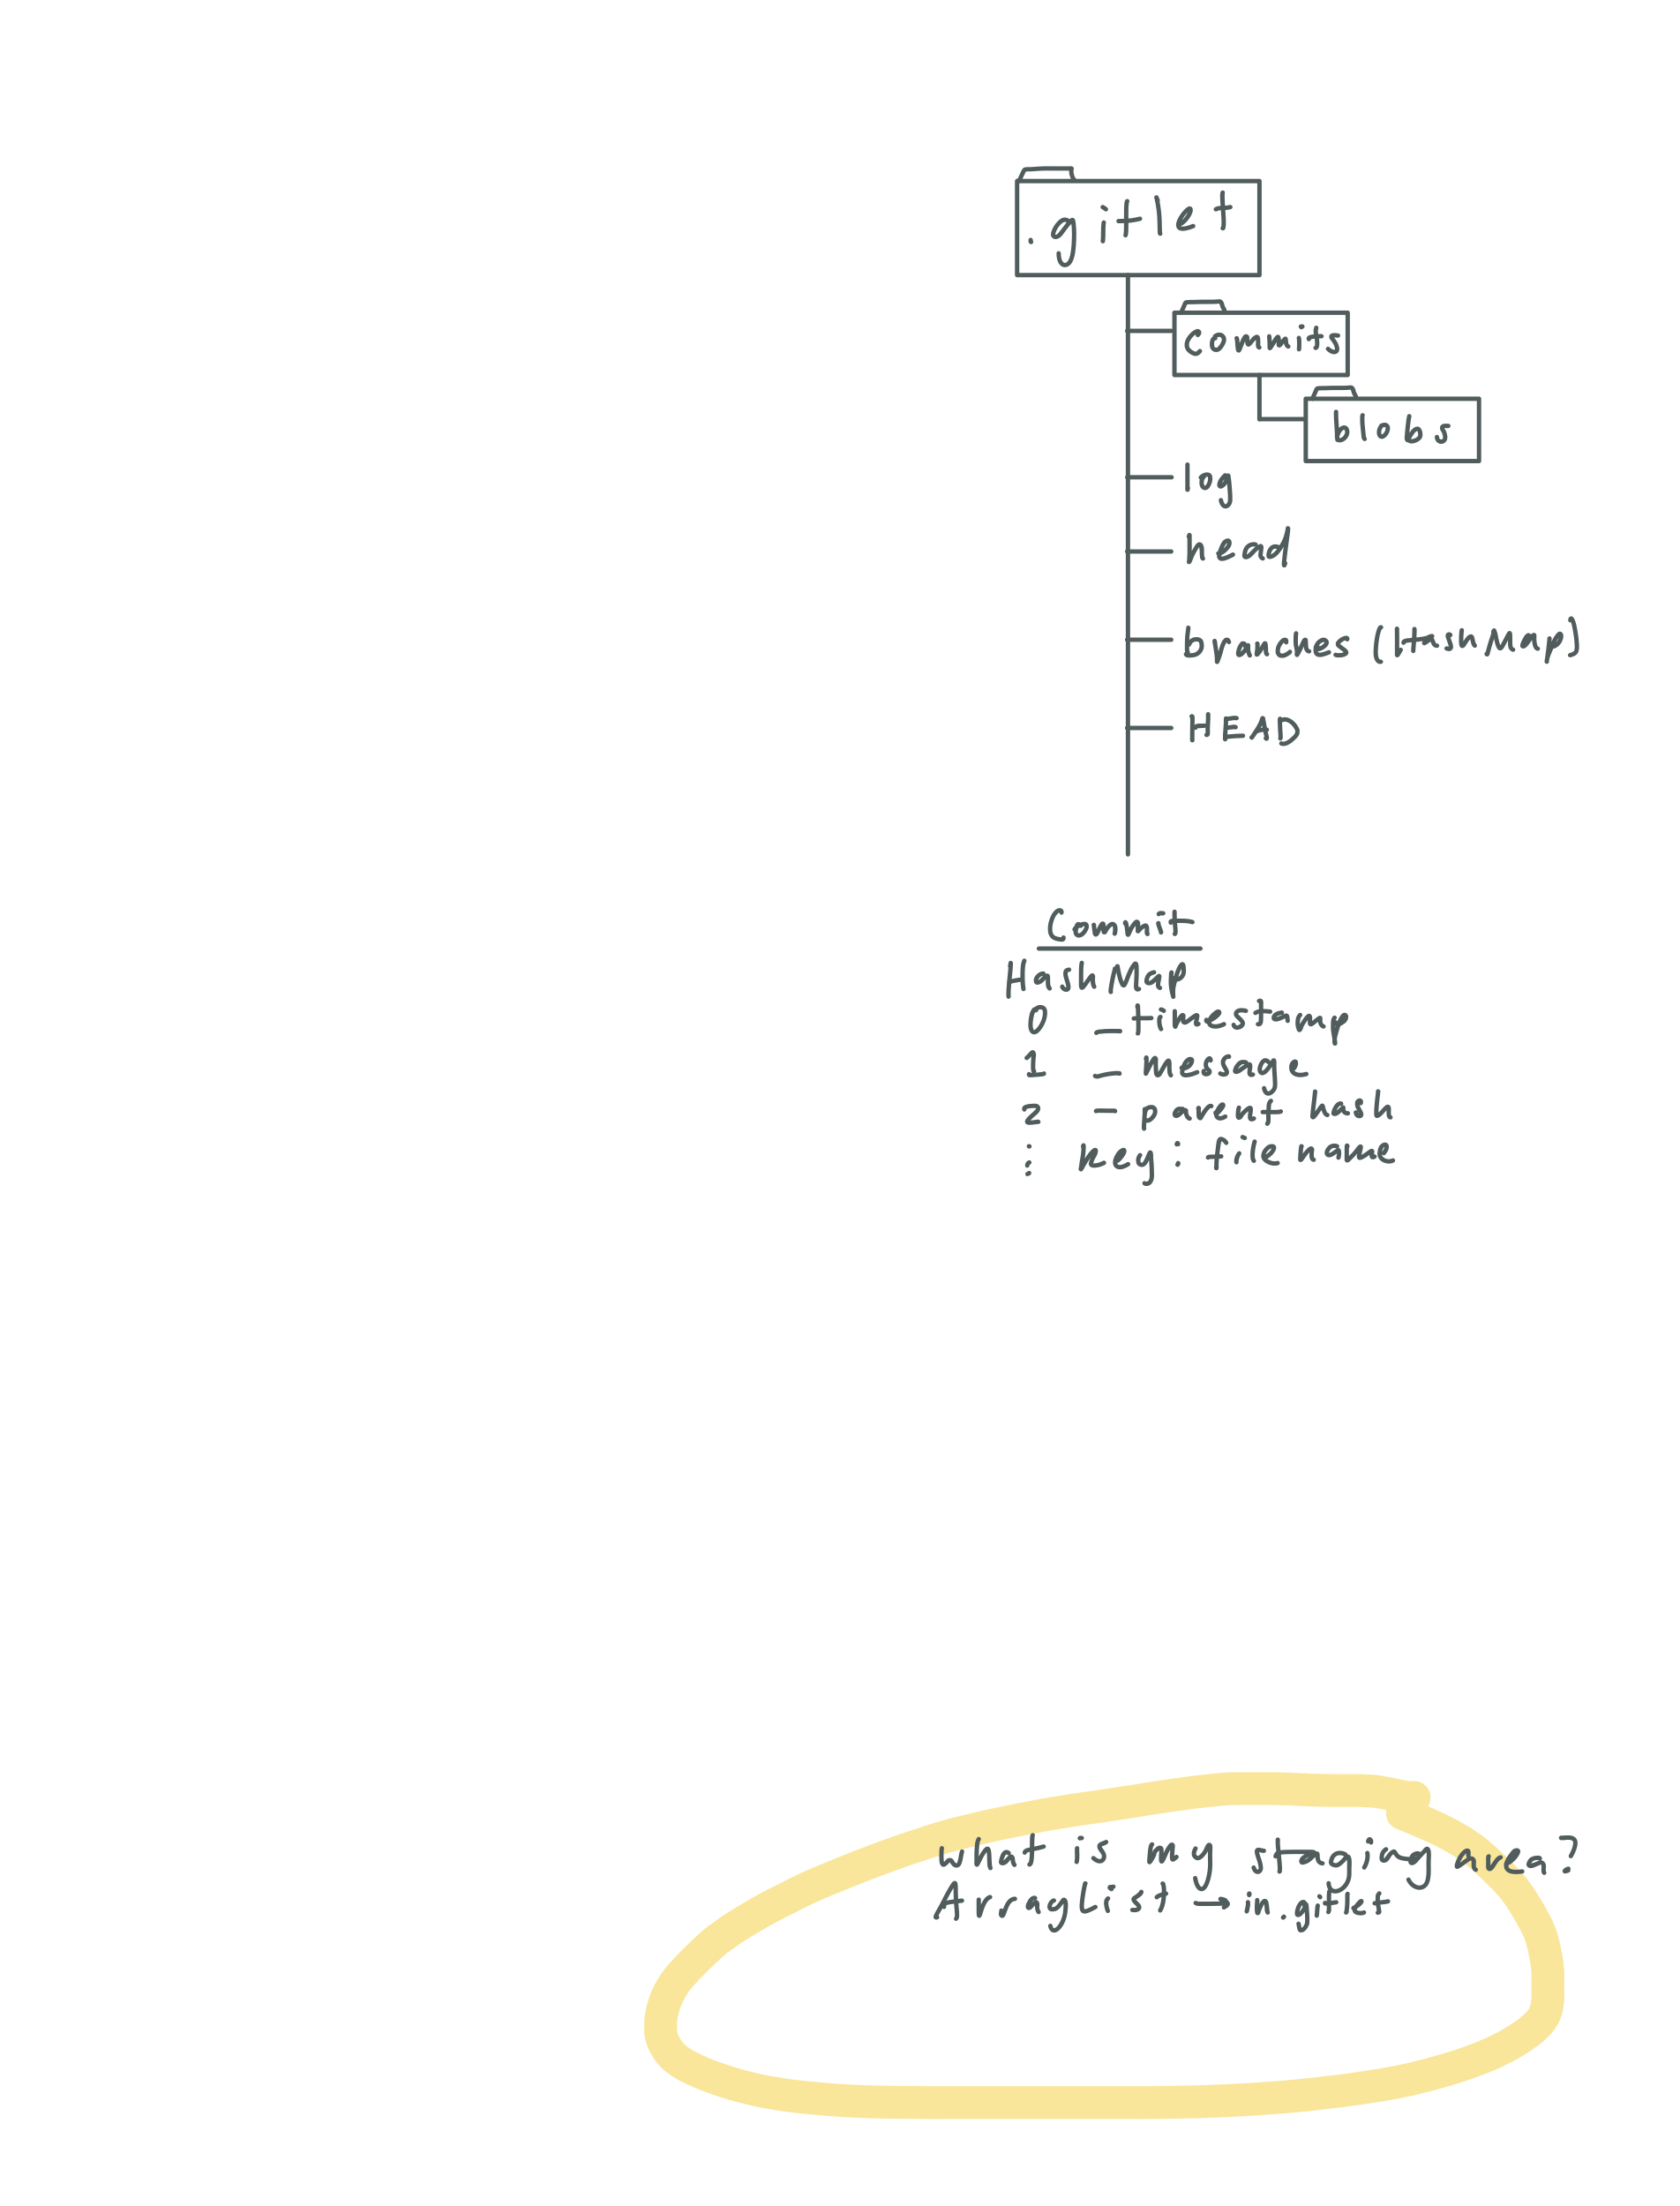 .gitlet
commits
blobs
log
head
branches (HashMap)
HEAD
Commit
HashMap
0 - timestamp
1 - message
2 - parent hash
⋮ key: file name
what is my staging area?
ArrayList - in .gitlet